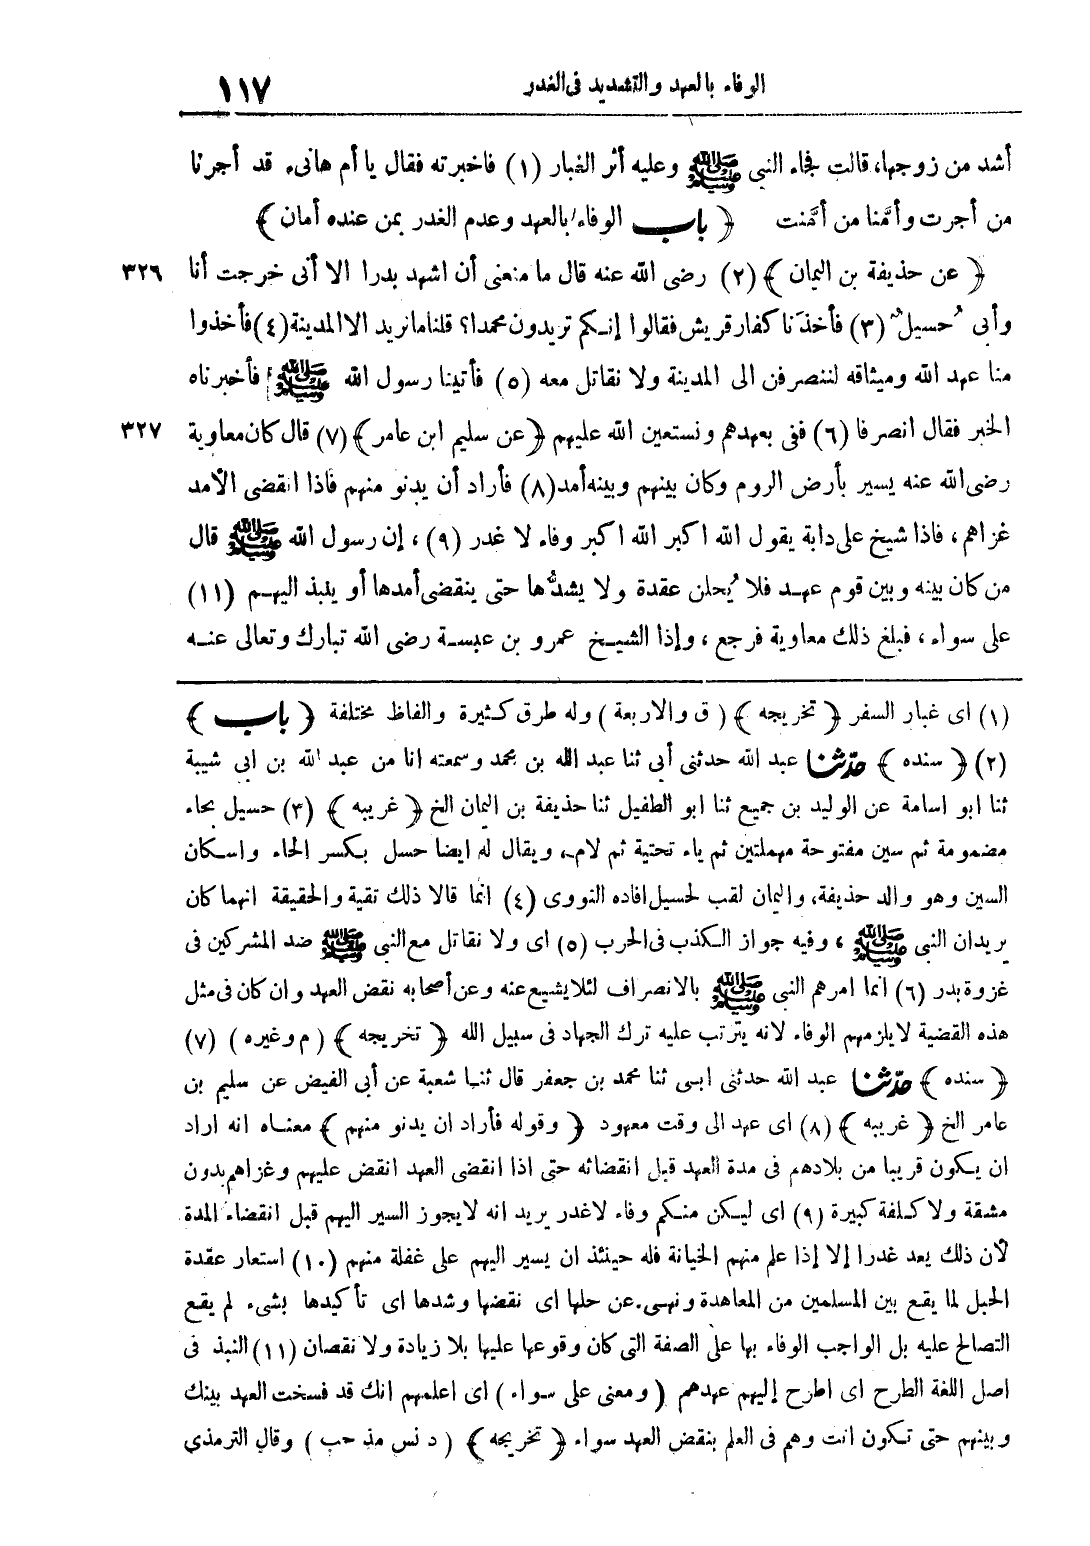 الوفاء بالعهد والتشديد فى الغدر ١١٧
أشد من زوجها، قالت فجاء النبى ﷺ وعليه أثر الغبار (١) فاخبرته فقال يا أم هانىء قد أجرنا
من أجرت وأمَّنا من أمَّنت ﴿ باب الوفاء بالعهد وعدم الغدر بمن عنده أمان ﴾
﴿ عن حذيفة بن اليمان ﴾ (٢) رضى الله عنه قال ما منعنى أن اشهد بدرا الا أنى خرجت أنا ٣٢٦
وأبى حُسيلٌ (٣) فأخذَنا كفار قريش فقالوا إنكم تريدون محمدا؟ قلنا ما نريد الا المدينة (٤) فأخذوا
منا عهد الله وميثاقه لننصرفن الى المدينة ولا نقاتل معه (٥) فأتينا رسول الله ﷺ فأخبرناه
الخبر فقال انصرفا (٦) نفى بعهدهم ونستعين الله عليهم ﴿ عن سليم ابن عامر ﴾ (٧) قال كان معاوية ٣٢٧
رضى الله عنه يسير بأرض الروم وكان بينهم وبينه أمد (٨) فأراد أن يدنو منهم فاذا انقضى الأمد
غزاهم، فاذا شيخ على دابة يقول الله اكبر الله اكبر وفاء لا غدر (٩) ، إن رسول الله ﷺ قال
من كان بينه وبين قوم عهد فلا يُحلن عقدة ولا يشدُّها حتى ينقضى أمدها أو ينبذ اليهم (١١)
على سواء ، فبلغ ذلك معاوية فرجع ، وإذا الشيخ عمرو بن عبسة رضى الله تبارك وتعالى عنه
(١) اى غبار السفر ﴿ تخريجه ﴾ ( ق والاربعة ) وله طرق كثيرة والفاظ مختلفة ﴿ باب ﴾
(٢) ﴿ سنده ﴾ حدّثنا عبد الله حدثنى أبى ثنا عبد الله بن محمد وسمعته انا من عبد الله بن ابى شيبة
ثنا ابو اسامة عن الوليد بن جميع ثنا ابو الطفيل ثنا حذيفة بن اليمان الخ ﴿ غريبه ﴾ (٣) حسيل بحاء
مضمومة ثم سين مفتوحة مهملتين ثم ياء تحتية ثم لام، ويقال له ايضا حسل بكسر الحاء واسكان
السين وهو والد حذيفة، واليمان لقب لحسيل افاده النووى (٤) انما قالا ذلك تقية والحقيقة انهما كان
يريدان النبى ﷺ ، وفيه جواز الكذب فى الحرب (٥) اى ولا نقاتل مع النبى ﷺ ضد المشركين فى
غزوة بدر (٦) انما امرهم النبى ﷺ بالانصراف لئلا يشيع عنه وعن أصحابه نقض العهد وان كان فى مثل
هذه القضية لا يلزمهم الوفاء لانه يترتب عليه ترك الجهاد فى سبيل الله ﴿ تخريجه ﴾ ( م وغيره ) (٧)
﴿ سنده ﴾ حدّثنا عبد الله حدثنى ابى ثنا محمد بن جعفر قال ثنا شعبة عن أبى الفيض عن سليم بن
عامر الخ ﴿ غريبه ﴾ (٨) اى عهد الى وقت معهود ﴿ وقوله فأراد ان يدنو منهم ﴾ معناه انه اراد
ان يكون قريبا من بلادهم فى مدة العهد قبل انقضائه حتى اذا انقضى العهد انقض عليهم وغزاهم بدون
مشقة ولا كلفة كبيرة (٩) اى ليكن منكم وفاء لا غدر يريد انه لا يجوز السير اليهم قبل انقضاء المدة
لأن ذلك يعد غدرا إلا إذا علم منهم الخيانة فله حينئذ ان يسير اليهم على غفلة منهم (١٠) استعار عقدة
الحبل لما يقع بين المسلمين من المعاهدة ونهى عن حلها اى نقضها وشدها اى تأكيدها بشىء لم يقع
التصالح عليه بل الواجب الوفاء بها على الصفة التى كان وقوعها عليها بلا زيادة ولا نقصان (١١) النبذ فى
اصل اللغة الطرح اى اطرح إليهم عهدهم ( ومعنى على سواء ) اى اعلمهم انك قد فسخت العهد بينك
وبينهم حتى تكون انت وهم فى العلم بنقض العهد سواء ﴿ تخريجه ﴾ ( د نس مذ حب ) وقال الترمذى